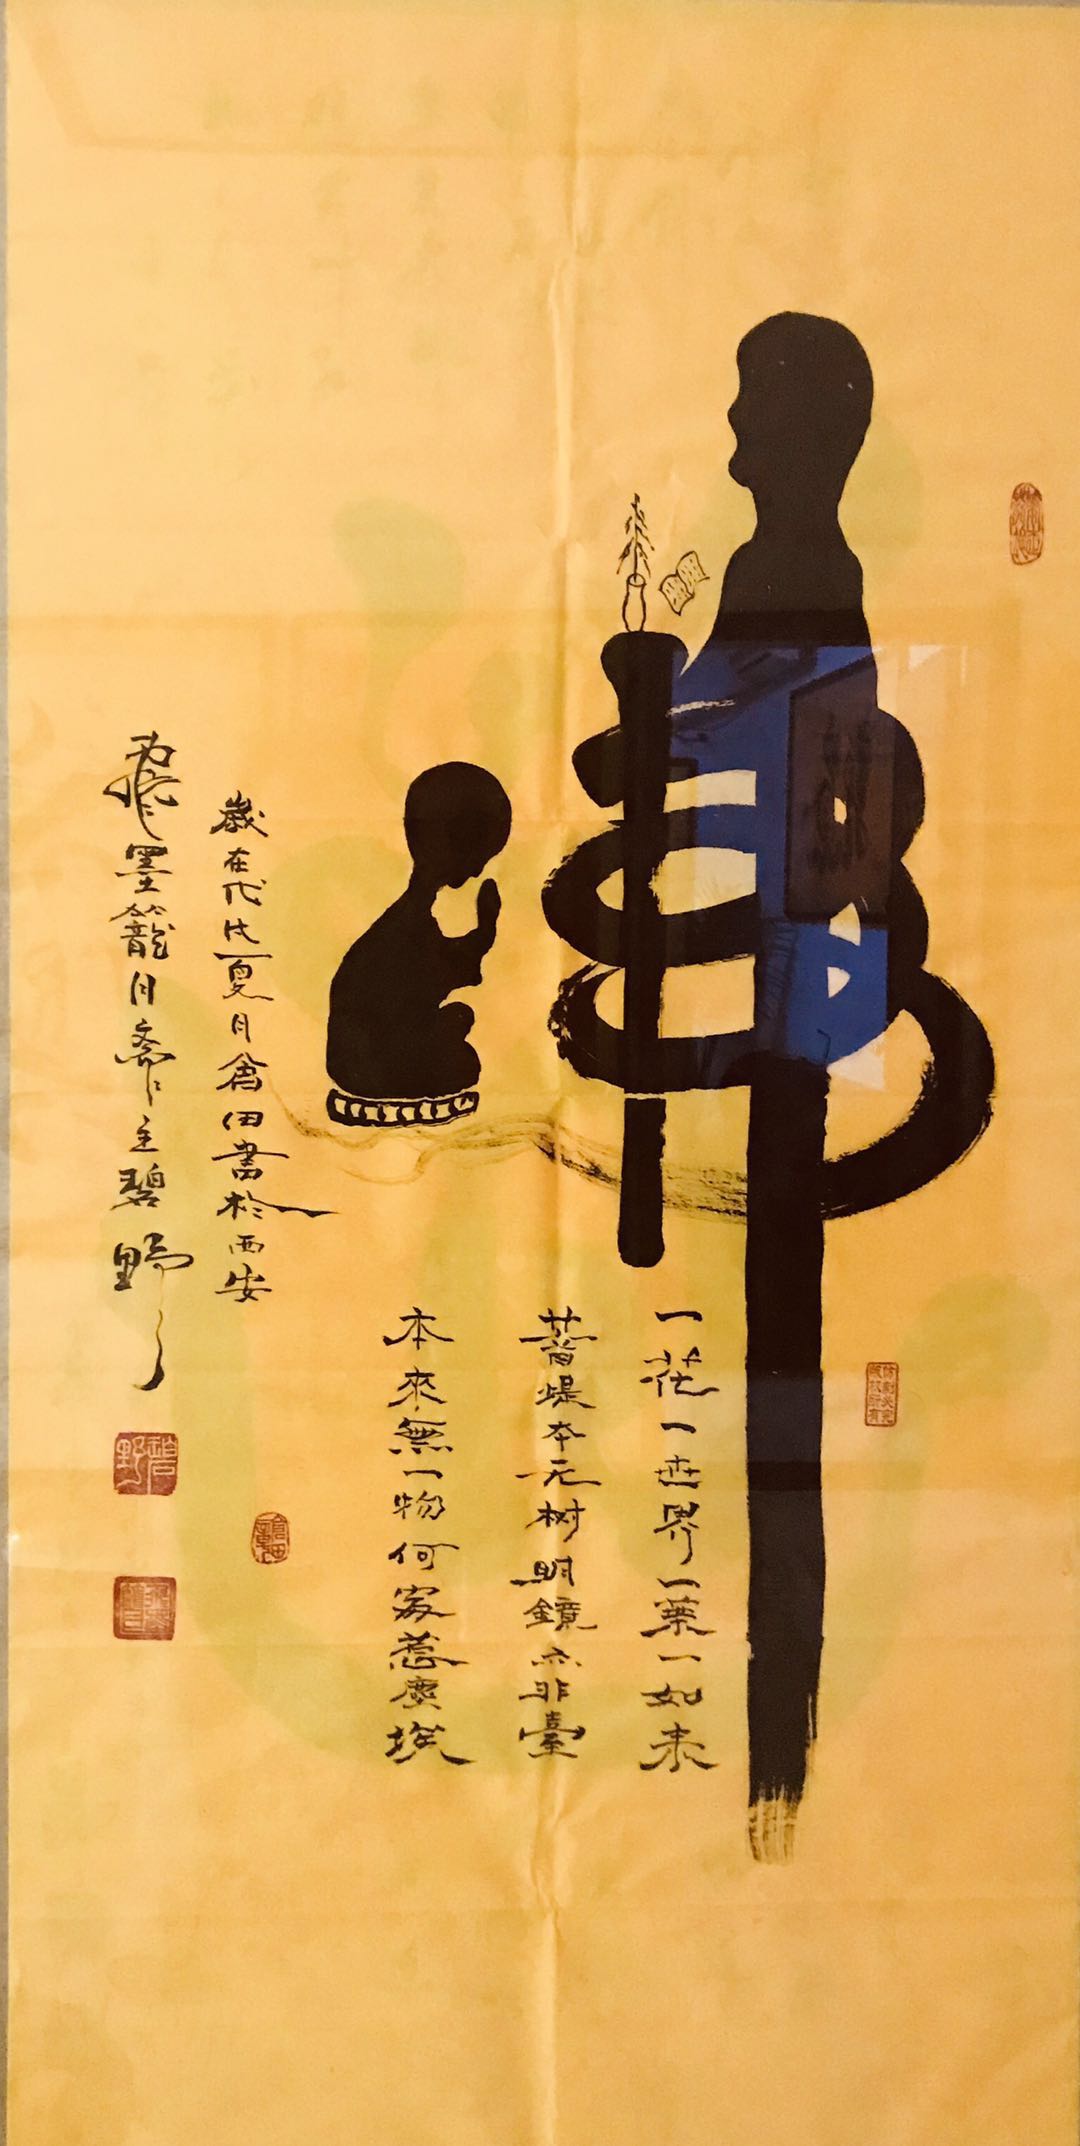 佛
一花一世界一葉一如来
菩提本无树明鏡亦非臺
本來無一物何處惹塵埃
歲在戊戌夏月倉田書於西安
飛墨籠月斋主碧野
碧野